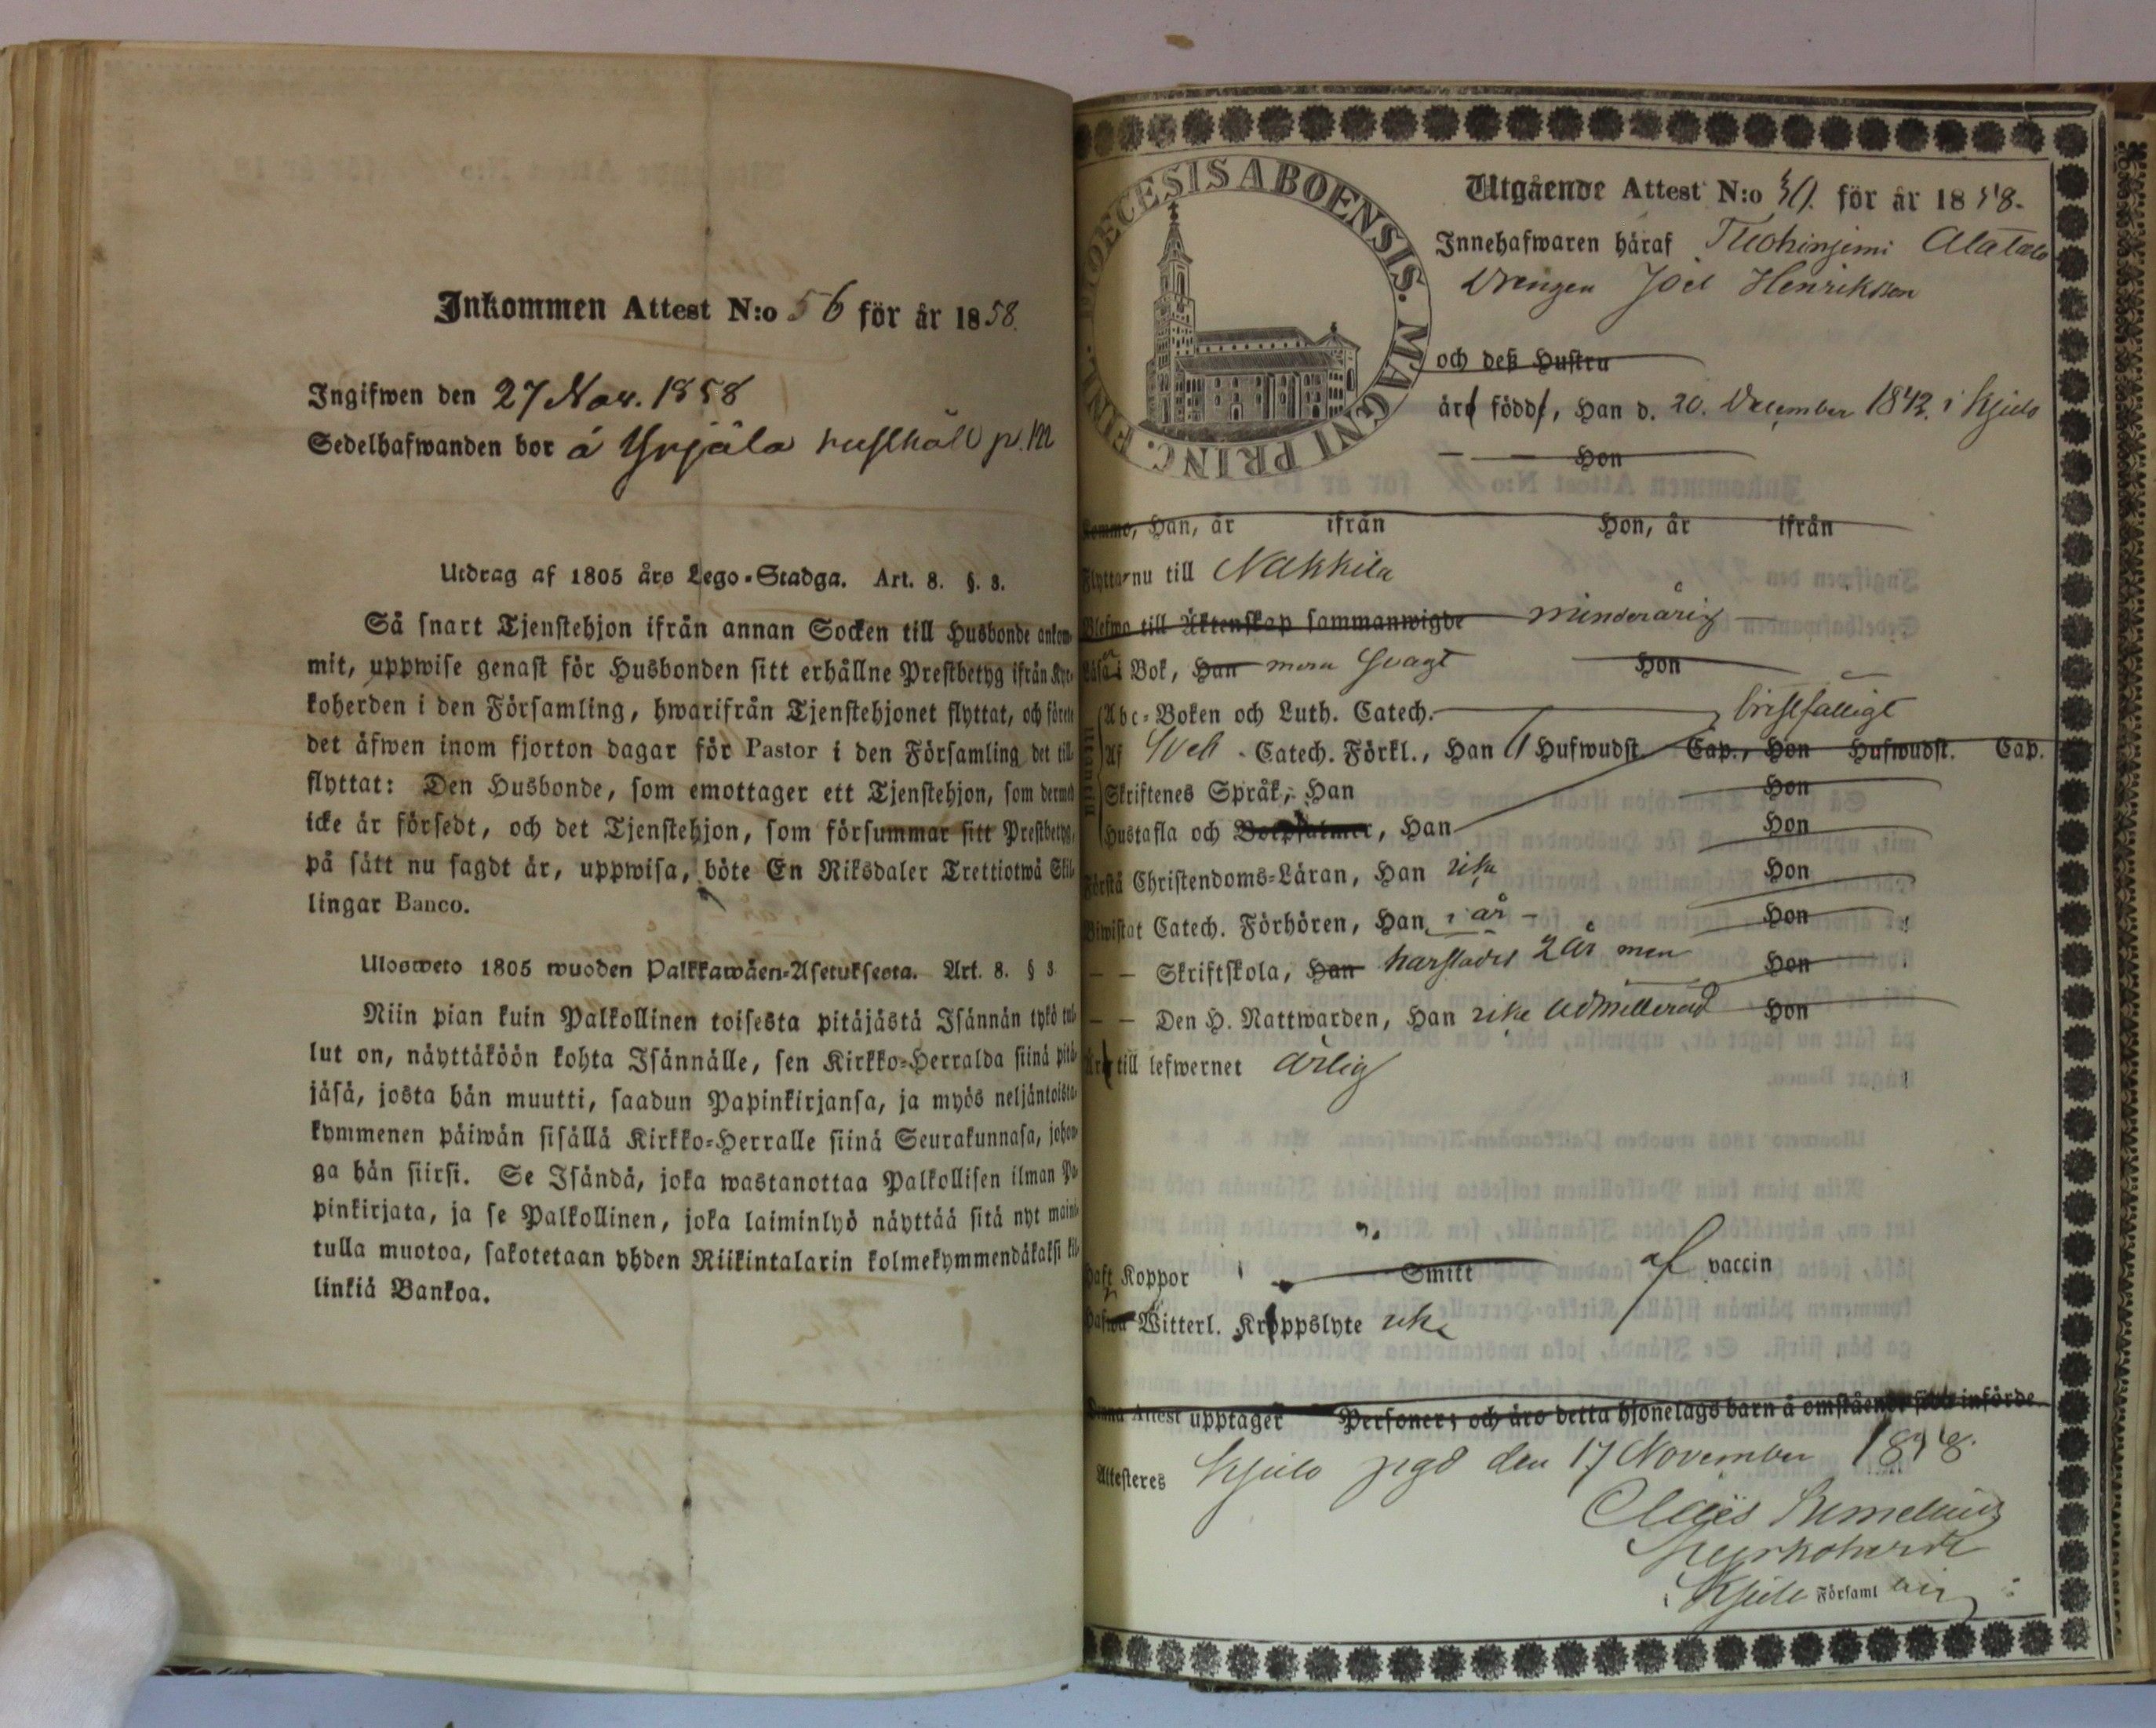 Inkommen Attest N:o 56 för år 1858.
Ingifwen den 27 Nov. 1858
Sedelhafwanden bor å Yrjälä rusthåll p.m
Utdrag af 1805 års Lego-Stadga. Art. 8. §. 3.
Så snart Tjenstehjon ifrån annan Socken till Husbonde ankom-
mit, uppwise genast för Husbonden sitt erhållne Prestbetyg ifrån Kyr-
koherden i den Församling, hwarifrån Tjenstehjonet flyttat, och förete
det äfwen inom fjorton dagar för Pastor i den Församling det till-
flyttat: Den Husbonde, som emottager ett Tjenstehjon, som dermed
icke är försedt, och det Tjenstehjon, som försummar sitt Prestbetyg,
på sätt nu sagdt är, uppwisa, böte En Riksdaler Trettiotwå Skil-
lingar Banco.
Ulosweto 1805 wuoden Palkkawäen-Asetuksesta. Art. 8. § 3
Niin pian kuin Palkollinen toisesta pitäjästä Isännän tykö tul-
lut on, näyttäköön kohta Isännälle, sen Kirkko-Herralda siinä pitä-
jäsä, josta hän muutti, saadun Papinkirjansa, ja myös neljäntoista-
kymmenen päiwän sisällä Kirkko-Herralle siinä Seurakunnasa, johon-
ga hän siirsi. Se Isändä, joka wastanottaa Palkollisen ilman Pa-
pinkirjata, ja se Palkollinen, joka laiminlyö näyttää sitä nyt maini-
tulla muotoa, sakotetaan yhden Riikintalarin kolmekymmendäkaksi kil-
linkiä Bankoa.
DIOECESIS ABOENSIS. MAGNI PRINC. FINL.
Utgående Attest N:o för år 1858.
Innehafwaren häraf Tuohiniemi Alatalo
Drengen Joel Henriksson
och deß Hustru
äro född, Han d. 20. December 1842. i Kjulo
Hon
Kommo, Han, år ifrån Hon, år ifrån
Flyttar nu till Nakkila
Blefwo till Äktenskap sammanwigde minderårig
Läsa i Bok, Han mera svagt Hon
Abc-Boken och Luth. Catech. bristfälligt
Af Sveb. Catech. Förkl., Han Hufwudst. Cap., Hon Hufwudst. Cap.
Skriftenes Språk, Han Hon
Hustafla och Botpsalmer, Han Hon
Förstå Christendoms-Läran, Han icke Hon
Biwistat Catech. Förhören, Han i år Hon
— — Skriftskola, Han 2 år men Hon
— — Den H. Nattwarden, Han icke admitterad Hon
Är till lefwernet ärlig
Haft Koppor Smitt af vaccin
Hafwa Witterl. Kroppslyte icke
Denna Attest upptager Personer; och äro detta hjonelags barn å omstående sida införde
Attesteres Kjulo pgd den 17 November 1858
Claës
Kyrkoherde
i Kjulo Församling